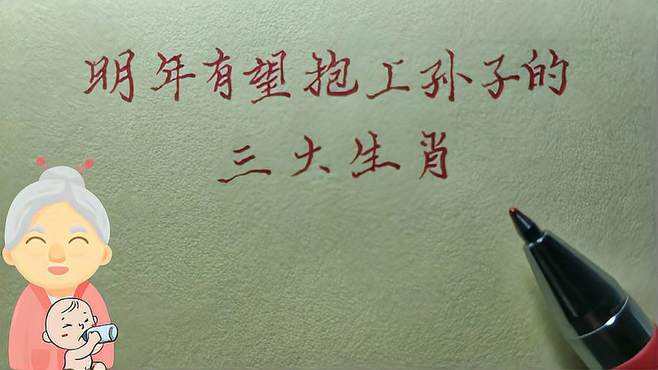 明年有望抱上孙子的
三大生肖